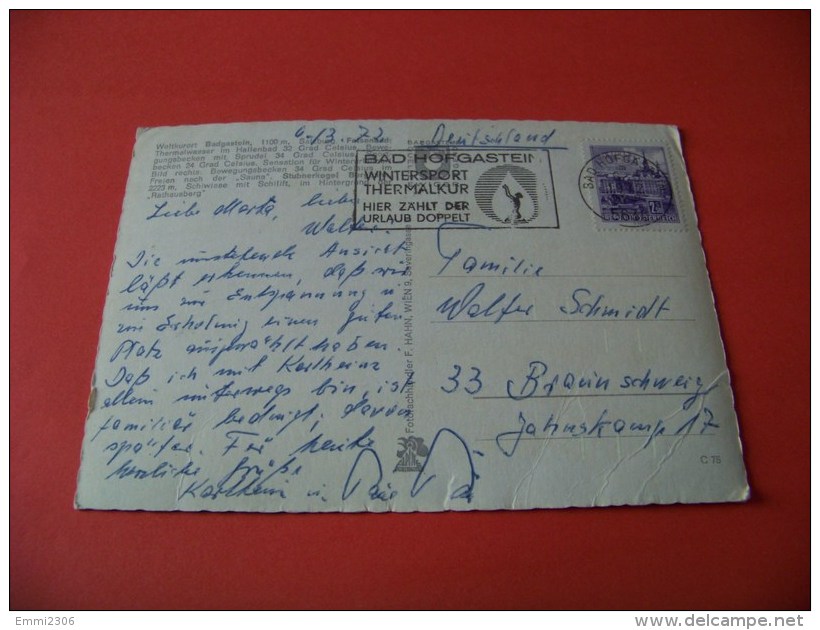 6.13.72
Deutschland
Weltkurort Badgastein, 1100 m, Salzburg
Thermalwasser im Hallenbad 32 Grad Celsius. Bewe-
gungsbecken mit Sprudel 34 Grad Celsius.
becken 24 Grad Celsius. Sonnestion für Winter
Bild rechts: Bewegungsbecken 34 Grad
Freien nach der „Sauna". Stubnerkogel
2225 m. Schiwiese mit Schilift, im Hintergrund
"Radhausberg"
BAD HOFGASTEIN
WINTERSPORT
THERMALKUR
HIER ZÄHLT DER
URLAUB DOPPELT
Liebe Marta, lieber
Walter.
Die umstehende Ansicht
läßt erkennen, daß wir
uns zur Entspannung u
zur Erholung einen guten
Platz ausgewählt haben.
Daß ich mit Karlheinz
allein unterwegs bin, ist
familiär bedingt; davon
später. Für heute
herzliche Grüße
Karlheinz u
Familie
Walter Schmidt
33 Braunschweig
Jahnskamp 17
Fotofachhändler F. HAHN, WIEN 9, Severingasse
C 75
Emmi2306
www.delcampe.net